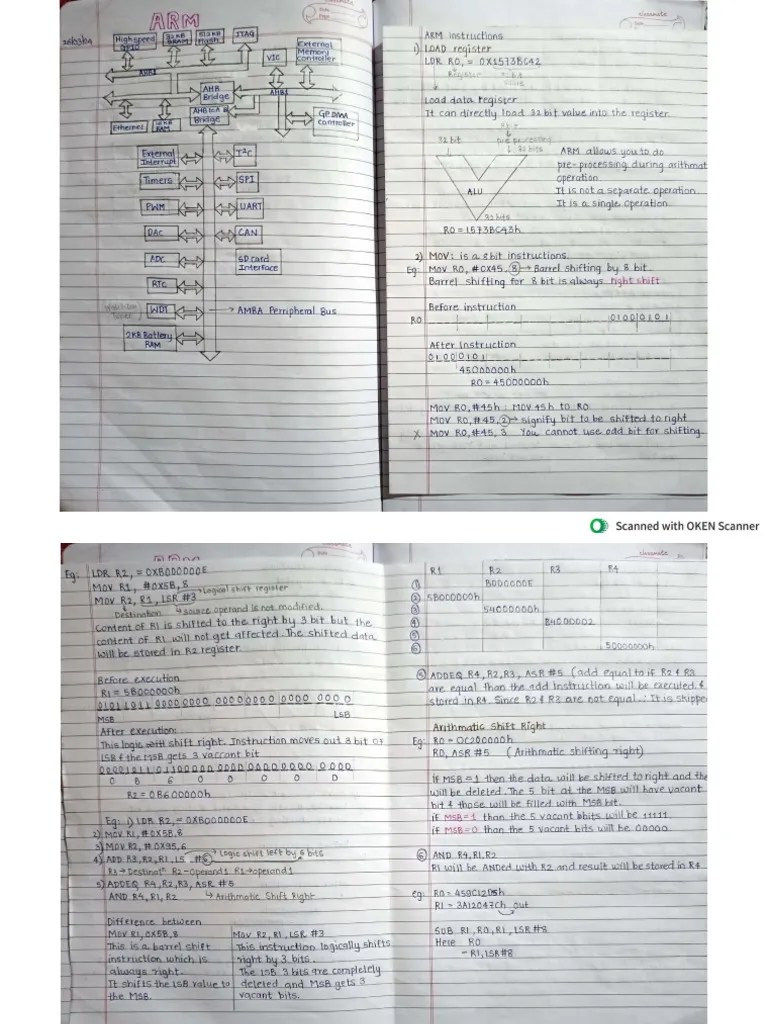 ARM
High speed
GPIO
JTAG
VIC
External
Memory
controller
AHB
Bridge
AHB1
AHB to APB
Bridge
GPDMA
controller
Ethernet
External
Interrupt
I²C
Timers
SPI
PWM
UART
DAC
CAN
ADC
SD card
Interface
RTC
WDT
→ AMBA Perripheral Bus
2KB Battery
RAM
classmate
ARM instructions
1) LOAD register
LDR R0, = 0X1573BC42
Register
Load data register
It can directly load 32 bit value into the register.
pre processing
32 bit
32 bits
ALU
32 bits
R0 = 1573BC43h
ARM allows you to do
pre-processing during arithmat
operation.
It is not a separate operation.
It is a single operation.
2) MOV: is a 8 bit instructions.
Eg: MOV R0, #0X45, 8 → Barrel shifting by 8 bit.
Barrel shifting for 8 bit is always right shift
Before instruction
R0 01000101
After instruction
01000101
45000000h
R0 = 45000000h
MOV R0, #45h : MOV 45h to R0
MOV R0, #45, 2 → signify bit to be shifted to right
X MOV R0, #45, 3 You cannot use odd bit for shifting.
Scanned with OKEN Scanner
Eg: LDR R2, = 0XB000000E
MOV R1, #0X5B, 8
→ Logical shift register
MOV R2, R1, LSR #3
Destination → source operand is not modified.
Content of R1 is shifted to the right by 3 bit but the
content of R1 will not get affected. The shifted data
will be stored in R2 register.
Before execution
R1 = 5B000000h
01011011 0000 0000 0000 0000 0000 0000
MSB LSB
After execution:
This logic with shift right. Instruction moves out 3 bit of
LSB & the MSB gets 3 vaccant bit
0 B 6 0 0 0 0 0
R2 = 0B600000h
Eg: 1) LDR R2, = 0XB000000E
2) MOV R1, #0X5B, 8
3) MOV R2, #0X95, 6
→ Logic shift left by 6 bits
R3 → Destinatⁿ R2 - Operand1 R1 → operand1
5) ADDEQ R4, R2, R3, ASR #5
AND R4, R1, R2 → Arithmatic Shift Right
Difference between
MOV R1, 0X5B, 8
This is a barrel shift
instruction which is
always right.
It shifts the LSB value to
the MSB.
MOV R2, R1, LSR #3
This instruction logically shifts
right by 3 bits.
The LSB 3 bits are completely
deleted and MSB gets 3
vacant bits.
classmate
R1 R2 R3 R4
① B000000E
② 5B000000h
③ 54000000h
④ 84000002
⑤
⑥ 50000000h
⑤ ADDEQ R4, R2, R3, ASR #5 (add equal to if R2 & R3
are equal than the add instruction will be execuled &
stored in R4. Since R2 & R3 are not equal ∴ It is shippe
Arithmatic Shift Right
Eg: R0 = 0C200000h
R0, ASR #5 (Arithmatic shifting right)
if MSB = 1 then the data will be shifted to right and the
will be deleted. The 5 bit at the MSB will have vacant
bit & those will be filled with MSB bit.
if MSB = 1 than the 5 vacant bbits will be 11111.
if MSB = 0 than the 5 vacant bits will be 00000.
⑥ AND R4, R1, R2
R1 will be ANDed with R2 and result will be stored in R4
eg: R0 = 459C12D5h
R1 = 3A12047Ch out
SUB R1, R0, R1, LSR #8
Here R0
- R1, LSR #8